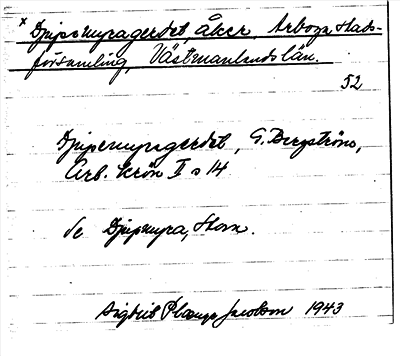 x Djupemyragerdet, åker, Arboga Stads-
församling, Västmanlands län.
52
Djupemyragerdet, G. Bergström,
Arb. Krön II s 14
Se Djupmyra, Stora.
Sigurd Jacobson 1943